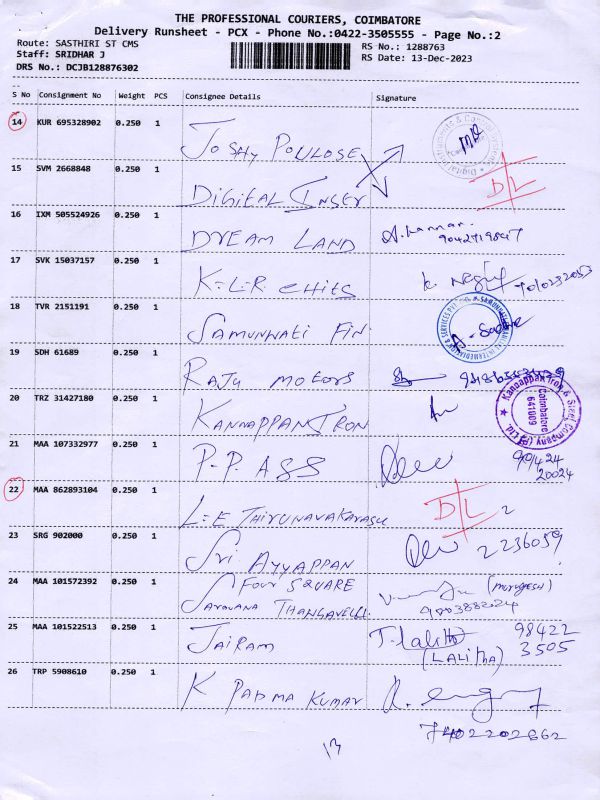 THE PROFESSIONAL COURIERS, COIMBATORE
Delivery Runsheet - PCX - Phone No.:0422-3505555 - Page No.:2
Route: SASTHIRI ST CMS
Staff: SRIDHAR J
DRS No.: DCJB128876302
RS No.: 1288763
RS Date: 13-Dec-2023
S No Consignment No Weight PCS Consignee Details Signature
14 KUR 695328902 0.250 1 JOSHY POULOSE
15 SVM 2668848 0.250 1 DIGITAL INSET D/L
16 IXM 505524926 0.250 1 DREAM LAND A. Kannan
17 SVK 15037157 0.250 1 K-L-R CHITS
18 TVR 2151191 0.250 1 SAMUNNATI FIN.
19 SDH 61689 0.250 1 RAJU MOTORS
20 TRZ 31427180 0.250 1 KANNAPPAN IRON
Kannappan Iron & Steel Company (P) Ltd.
Coimbatore
641009
21 MAA 107332977 0.250 1 P-P. ASS
22 MAA 862893104 0.250 1 L=E THIRUNAVAKARASU D/L 2
23 SRG 902000 0.250 1 SRI AYYAPPAN 2236059
24 MAA 101572392 0.250 1 FOUR SQUARE
SARAVANA THANGAVELU. (MURUGESH)
25 MAA 101522513 0.250 1 JAIRAM T. Lalitha 98422
(LALITHA) 3505
26 TRP 5908610 0.250 1 K PADMA KUMAR
7402202862
13